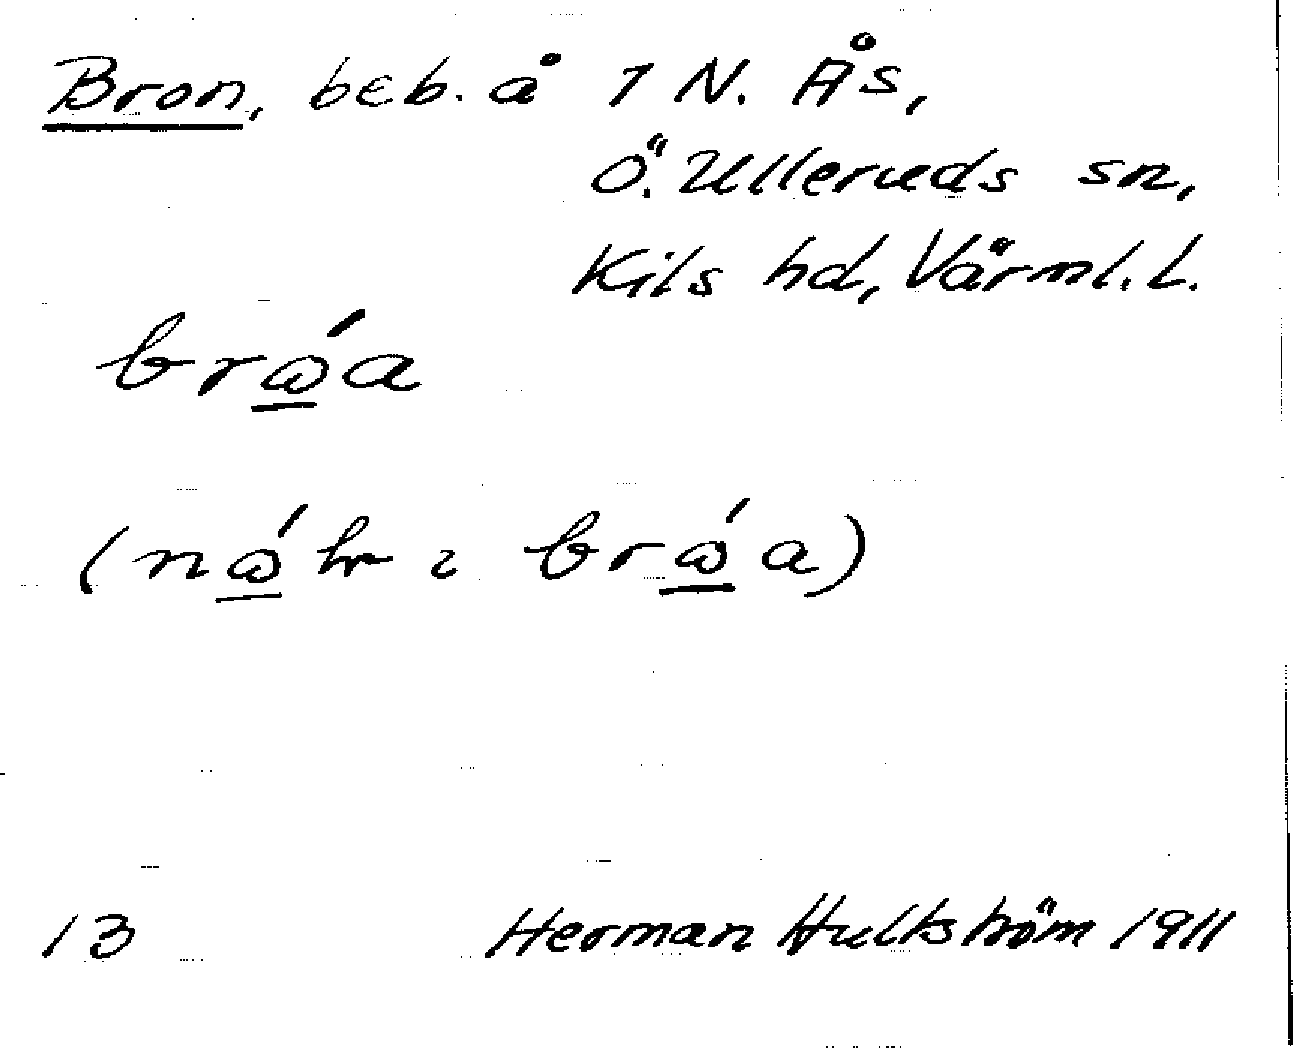 Bron, beb. å 1 N. Ås,
Ö. Ulleruds sn,
Kils hd, Värml. l.
brώ̲a
13 Herman Hultström 1911